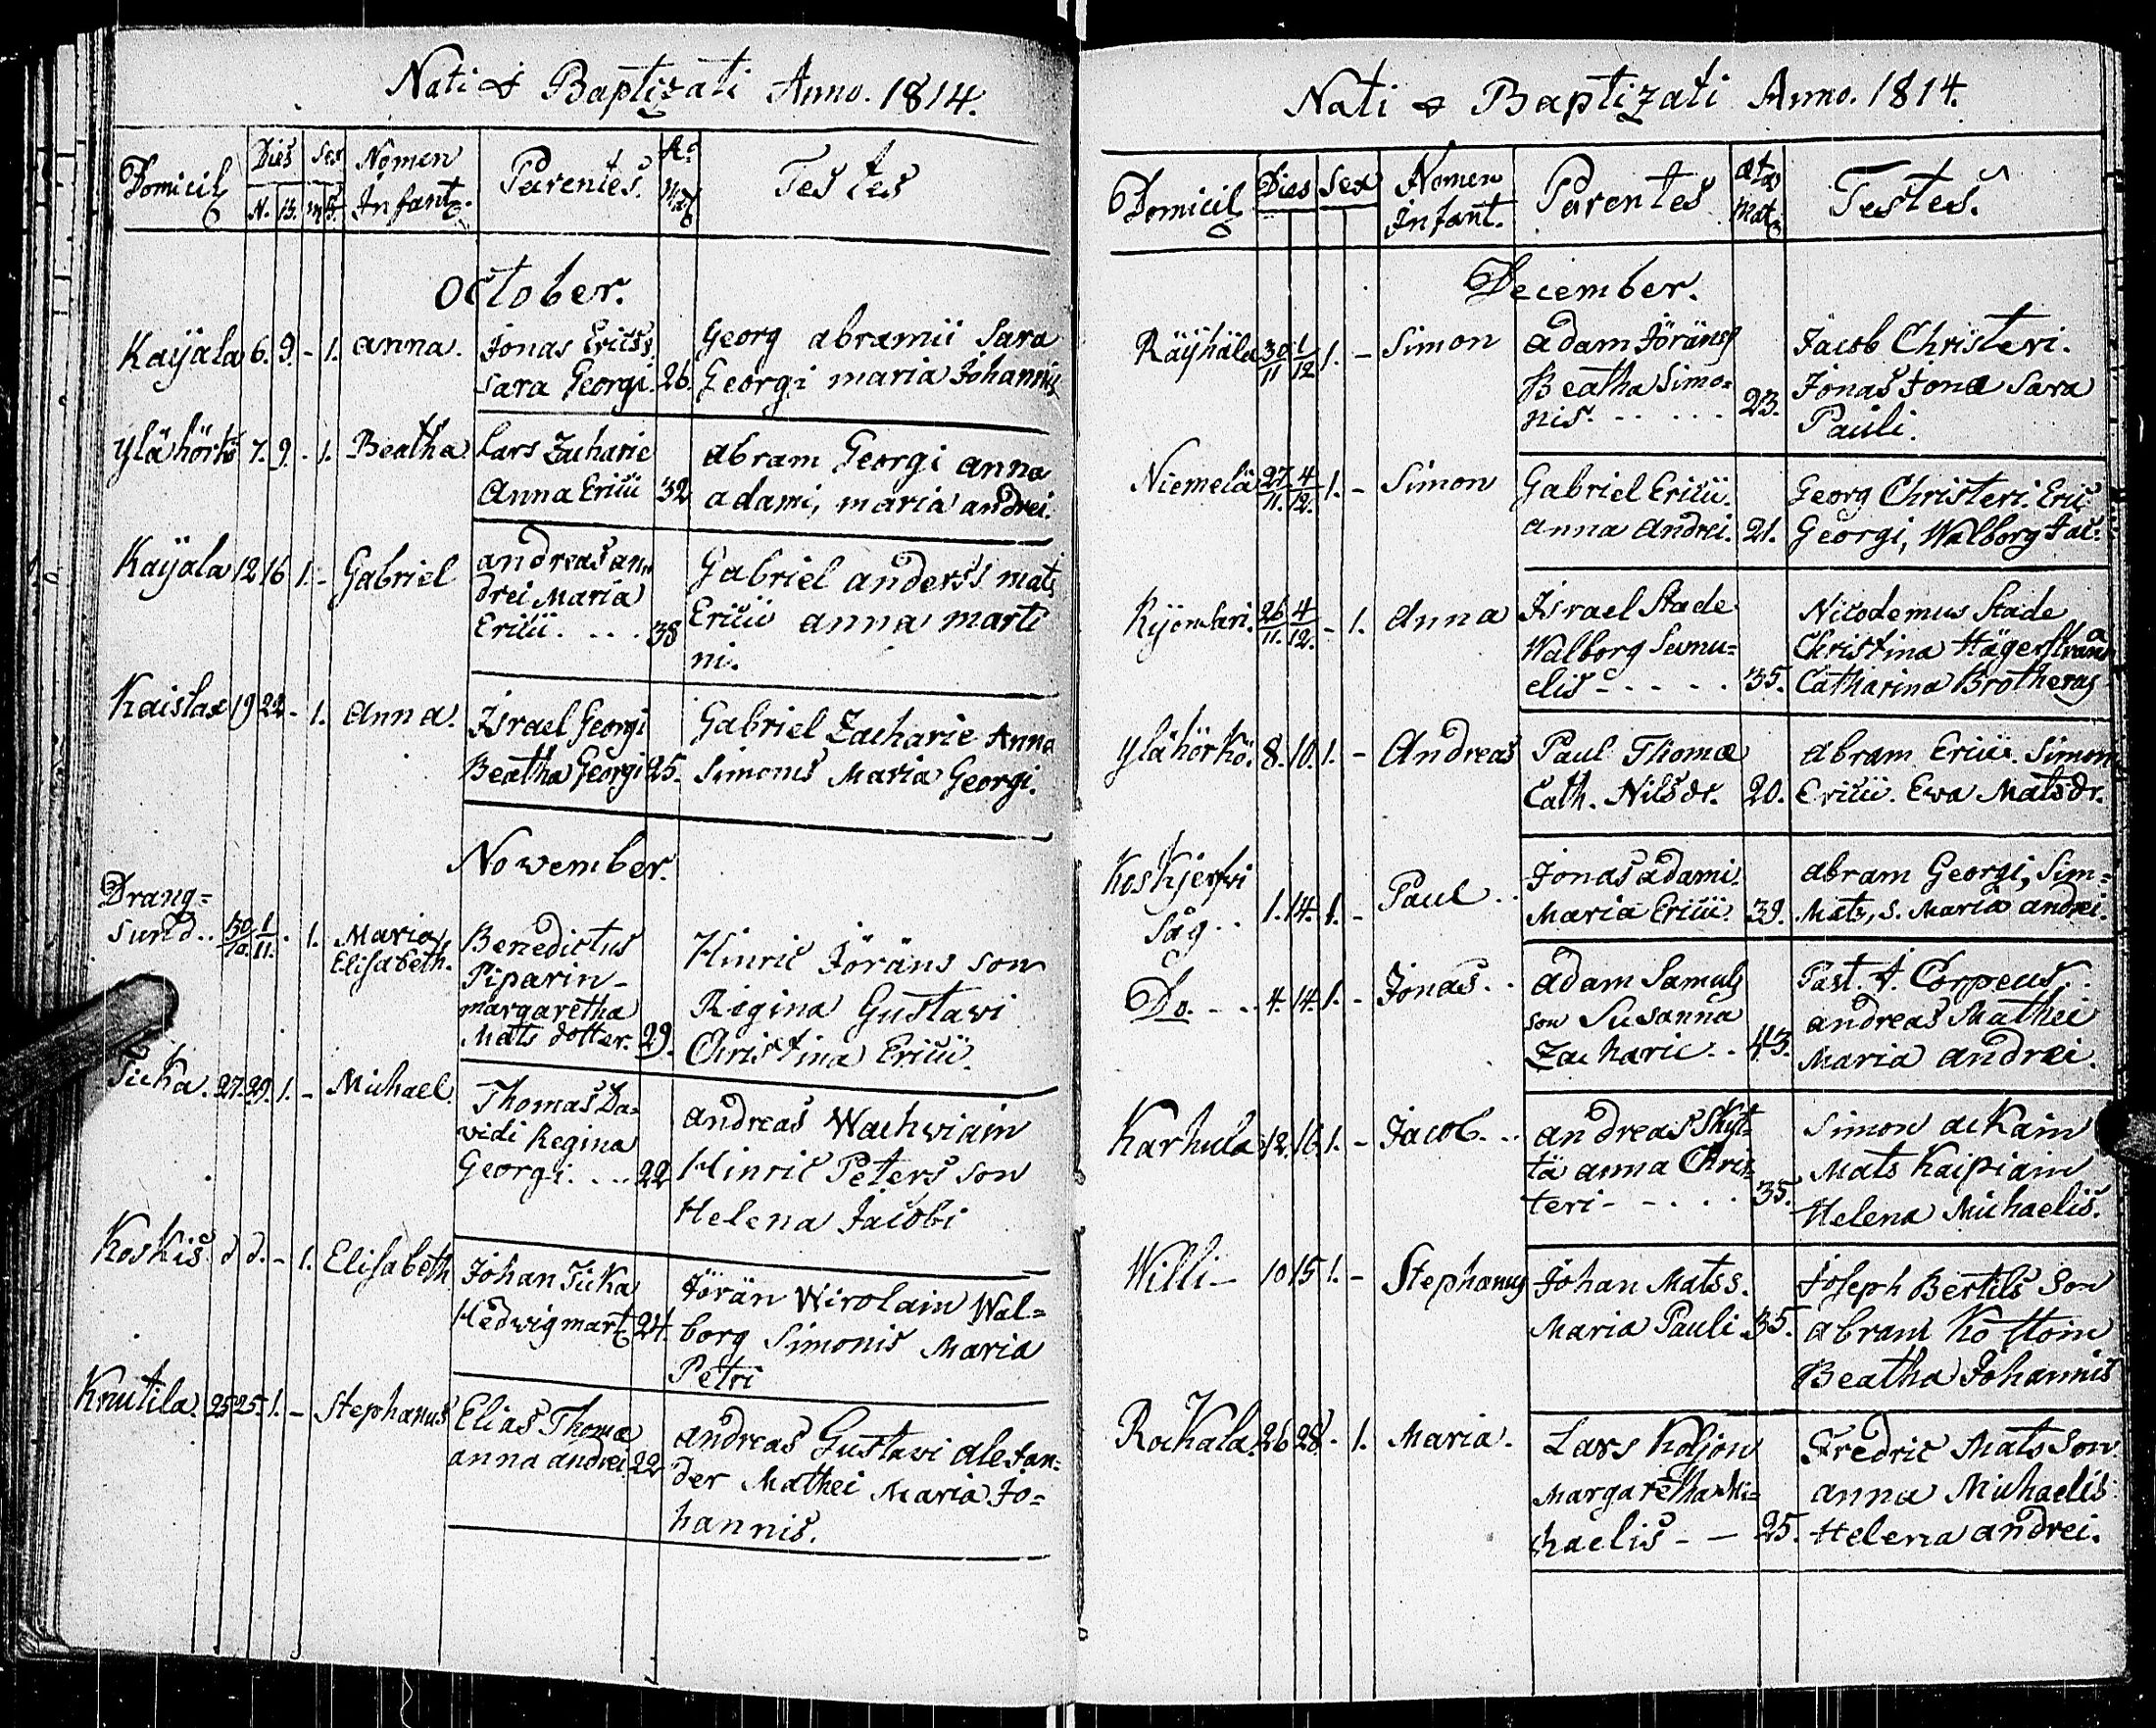 Nati & Baptizati Anno. 1814.
Domicil Dies Sex Nomen Infant. Parentes. Testes
N. B. M F.
October.
Kayala 6. 9. - 1. Anna. Jonas Ericss. Georg Abramii Sara
Sara Georgi. 26. Georgi Maria Johannis
Ylähörkö 7. 9. - 1. Beatha Lars Zacharie Abram Georgi Anna
Anna Ericii 32 Adami, Maria Andrei.
Kayala 12 16 1. - Gabriel Andreas An, Gabriel Anderss Mats
drei Maria Ericii Anna Marti
Ericii. . . . 38 ni.
Kaislax 19 22 - 1. Anna. Israel Georgi Gabriel Zacharie Anna
Beatha Georgi 25. Simonis Maria Georgi.
November.
Drang=
sund.. 30/10. 1/11. - 1. Maria Benedictus Hinric Jöräns son
Elisabeth. Piparin- Regina Gustavi
Margaretha Christina Ericii.
Mats dotter. 29.
Ticka. 27. 29. 1. - Michael. Thomas Da= Andreas Wachwiain
vidi Regina Hinric Peters son
Georgi. . . . 22 Helena Jacobi
Koskis. d d. - 1. Elisabeth Johan Ticka Jörän Wirolain Wal=
Hedwig Mart. 24. borg Simonis Maria
Petri
Knutila. 25 25. 1. - Stephanus Elias Thomæ Andreas Gustavi Alexan=
Anna Andrei. 22 der Mathei Maria Jo=
hannis.
Nati & Baptizati Anno. 1814.
Domicil Dies Sex Nomen Infant. Parentes Ætas Mat. Testes.
December.
Räyhälä 30/11 1/12 1. - Simon Adam Jöräns Jacob Christeri.
Beatha Simo= Jonas Jonæ Sara
nis. - - . . . 23. Pauli.
Niemelä 27./11. 4/12. 1. - Simon Gabriel Ericii. Georg Christeri. Eric
Anna Andrei. 21. Georgi, Walborg Jac.
26/11. 4/12. - 1. Anna Israel Stade Nicodemus Stade
Walborg Samu= Christina Hägerstrand
elis - - . . . 35. Catharina Brotherus
Ylähörkö. 8. 10. 1. - Andreas Paul Thomæ Abram Ericii. Simon
Cath. Nilsdr. 20. Ericii. Ewa Matsdr.
Koskjerfvi
Såg. . 1. 14. 1. - Paul . . Jonas Adami. Abram Georgi, Sim=
Maria Ericii. 39. Mats, s. Maria Andrei.
Do. - - . 4. 14. 1. - Jonas. . Adam Samuls Past. A. Corpeus.
son Susanna Andreas Mathei
Zacharie. . 43. Maria Andrei.
Karhula 12. 16. 1. - Jacob. . . Andreas Skyt= Simon Ackain
tä Anna Chris= Mats Kaipiain
teri - - . . . 35. Helena Michaelis.
Willi - 10 15 1. - Stephanus Johan Matss. Joseph Bertils son
Maria Pauli. 35. Abram Kottoin
Beatha Johannis
Rockala. 26 28 - 1. Maria. Lars Koljon Fredric Matsson.
Margaretha Mi= Anna Michaelis
chaelis - - 25. Helena Andrei.